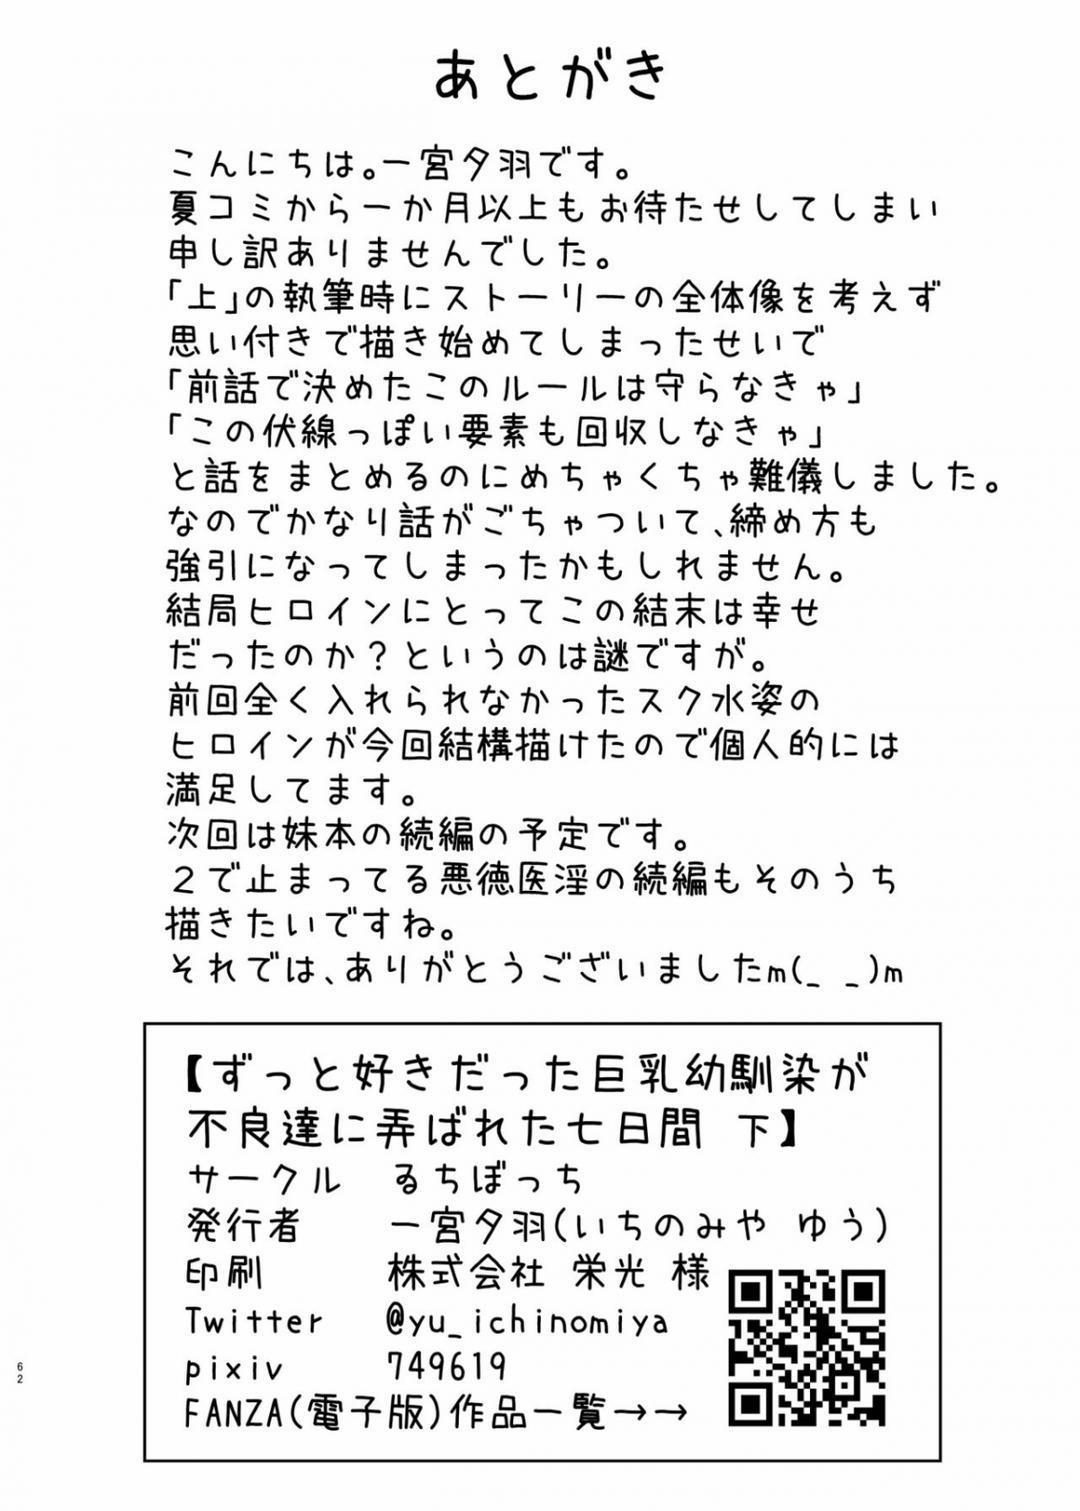 あとがき
こんにちは。一宮夕羽です。
夏コミから一か月以上もお待たせしてしまい
申し訳ありませんでした。
「上」の執筆時にストーリーの全体像を考えず
思い付きで描き始めてしまったせいで
「前話で決めたこのルールは守らなきゃ」
「この伏線っぽい要素も回収しなきゃ」
と話をまとめるのにめちゃくちゃ難儀しました。
なのでかなり話がごちゃついて、締め方も
強引になってしまったかもしれません。
結局ヒロインにとってこの結末は幸せ
だったのか？というのは謎ですが。
前回全く入れられなかったスク水姿の
ヒロインが今回結構描けたので個人的には
満足してます。
次回は妹本の続編の予定です。
２で止まってる悪徳医淫の続編もそのうち
描きたいですね。
それでは、ありがとうございましたm(_ _)m
【ずっと好きだった巨乳幼馴染が
不良達に弄ばれた七日間 下】
サークル るちぼっち
発行者 一宮夕羽(いちのみや ゆう)
印刷 株式会社 栄光 様
Twitter @yu_ichinomiya
pixiv 749619
FANZA(電子版)作品一覧→→
62